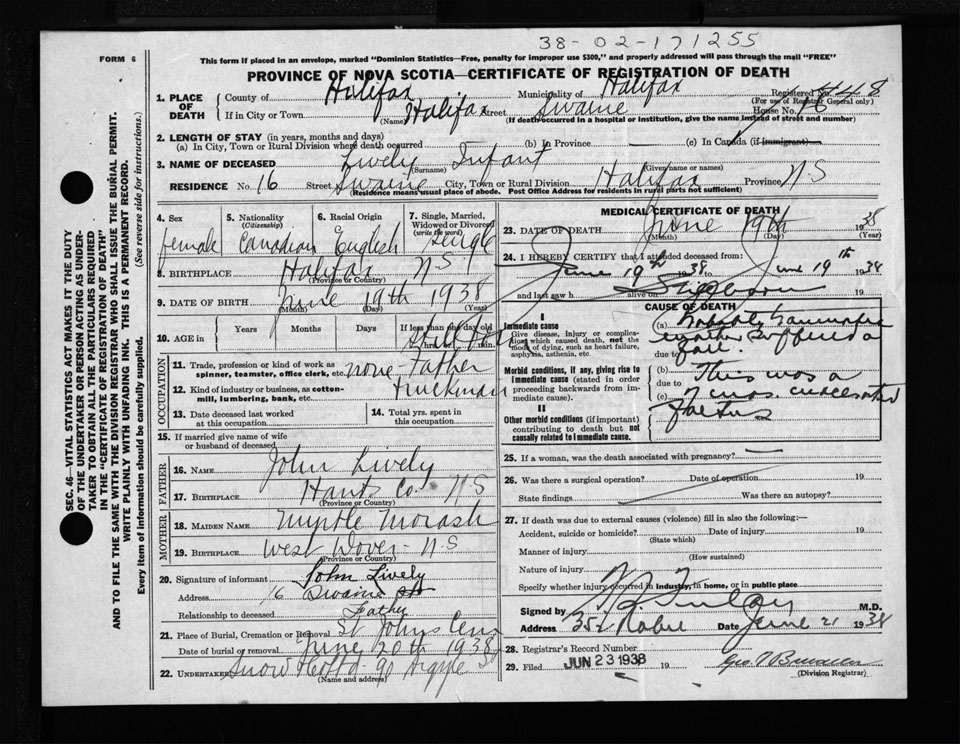 38-02-171255
FORM 6
This form if placed in an envelope, marked "Dominion Statistics—Free, penalty for improper use $300," and properly addressed will pass through the mail "FREE"
PROVINCE OF NOVA SCOTIA—CERTIFICATE OF REGISTRATION OF DEATH
SEC. 46—VITAL STATISTICS ACT MAKES IT THE DUTY
OF THE UNDERTAKER OR PERSON ACTING AS UNDER-
TAKER TO OBTAIN ALL THE PARTICULARS REQUIRED
IN THE "CERTIFICATE OF REGISTRATION OF DEATH"
AND TO FILE THE SAME WITH THE DIVISION REGISTRAR WHO SHALL ISSUE THE BURIAL PERMIT.
WRITE PLAINLY WITH UNFADING INK. THIS IS A PERMANENT RECORD.
Every item of information should be carefully supplied. (See reverse side for instructions.)
1. PLACE OF DEATH County of Halifax Municipality of Halifax Registered No.
(For use of Registrar General only)
If in City or Town Halifax Street Swaine House No. 16
(Name) (If death occurred in a hospital or institution, give the name instead of street and number)
2. LENGTH OF STAY (in years, months and days)
(a) In City, Town or Rural Division where death occurred (b) In Province — (c) In Canada (if immigrant)
3. NAME OF DECEASED Lively Infant
(Surname) (Given name or names)
RESIDENCE No. 16 Street Swaine City, Town or Rural Division Halifax Province N S
(Residence means usual place of abode. Post Office Address for residents in rural parts not sufficient)
4. Sex 5. Nationality (Citizenship) 6. Racial Origin 7. Single, Married, Widowed or Divorced (write the word)
female Canadian English Single
8. BIRTHPLACE Halifax N S
(Province or Country)
9. DATE OF BIRTH June 19th 1938
(Month) (Day) (Year)
10. AGE in Years Months Days If less than one day old
hrs. or min.
Still born
OCCUPATION
11. Trade, profession or kind of work as spinner, teamster, office clerk, etc. none - Father
12. Kind of industry or business, as cotton-mill, lumbering, bank, etc. truckman
13. Date deceased last worked at this occupation
14. Total yrs. spent in this occupation
15. If married give name of wife or husband of deceased
FATHER
16. NAME John Lively
17. BIRTHPLACE Hants Co. N S
(Province or Country)
MOTHER
18. MAIDEN NAME Myrtle Morash
19. BIRTHPLACE West Dover - N.S
(Province or Country)
20. Signature of informant John Lively
Address 16 Swaine St
Relationship to deceased Father
21. Place of Burial, Cremation or Removal St Johns Cem
Date of burial or removal June 20th 1938
22. UNDERTAKER Snow & Co Ltd - 90 Argyle St
(Name and address)
MEDICAL CERTIFICATE OF DEATH
23. DATE OF DEATH June 19th 1938
(Month) (Day) (Year)
24. I HEREBY CERTIFY that I attended deceased from:
June 19th 1938 to June 19th 1938
and last saw h alive on Stillborn 19
CAUSE OF DEATH
I
Immediate cause
Give disease, injury or complication which caused death, not the mode of dying, such as heart failure, asphyxia, asthenia, etc
Morbid conditions, if any, giving rise to immediate cause (stated in order proceeding backwards from immediate cause).
II
Other morbid conditions (if important) contributing to death but not causally related to immediate cause.
(a) Probably
mother suffered a
due to fall.
(b) This was a
due to
(c) 7 mos. macerated
foetus
25. If a woman, was the death associated with pregnancy? —
26. Was there a surgical operation? Date of operation 19
State findings Was there an autopsy?
27. If death was due to external causes (violence) fill in also the following:—
Accident, suicide or homicide? Date of injury 19
(State which)
Manner of injury
(How sustained)
Nature of injury
Specify whether injury occurred in industry, in home, or in public place
Signed by M.D.
Address 352 Robie Date June 21 1938
28. Registrar's Record Number
29. Filed JUN 23 1938 19
(Division Registrar)